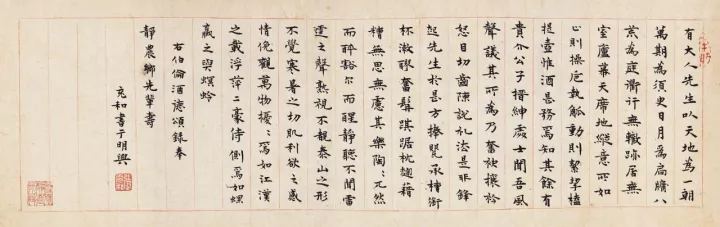 有大人先生以天地為一朝
萬期為須臾日月為扃牖八
荒為庭衢行無轍跡居無
室廬幕天席地縱意所如
止則操卮執觚動則挈榼
提壺惟酒是務焉知其餘有
貴介公子搢紳處士聞吾風
聲議其所為乃奮袂攘衿
怒目切齒陳說礼法是非鋒
起先生於是方捧甖承槽銜
杯漱醪奮髯踑踞枕麴藉
糟無思無慮其樂陶〻兀然
而醉豁尔而醒靜聽不聞雷
霆之聲熟視不覩泰山之形
不覺寒暑之切肌利欲之感
情俯觀萬物擾〻焉如江漢
之載浮萍二豪侍側焉如蜾
蠃之與螟蛉
右伯倫酒德頌錄奉
靜農鄉先輩壽
充和書于明興